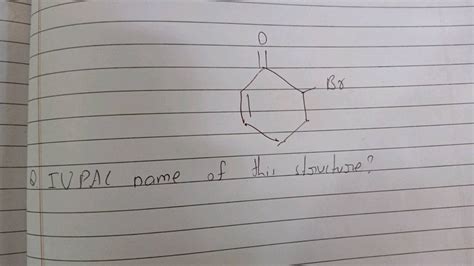 O
Br
Q IUPAC name of this structure?